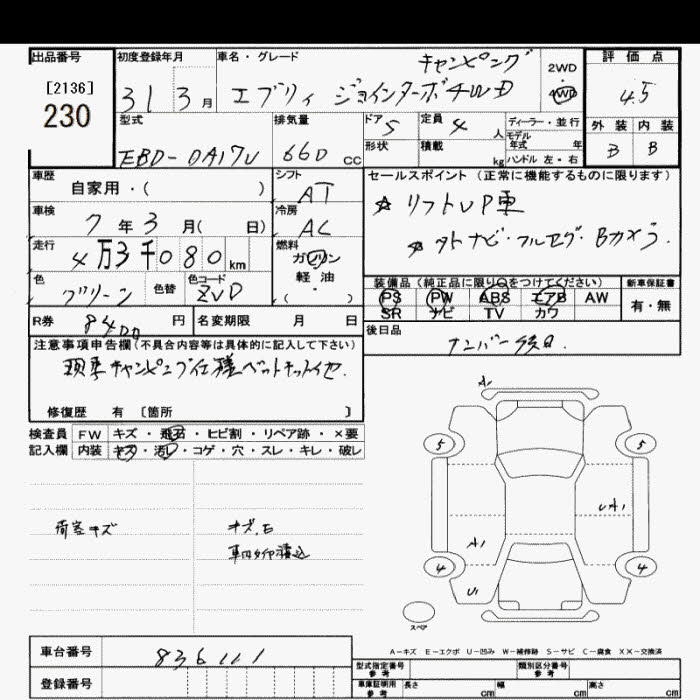 出品番号
[2136]
230
初度登録年月
31 3月
車名・グレード
キャンピング
エブリィ ジョインターボ4WD
2WD
4WD
評価点
4.5
外装 内装
B B
型式
EBD-DA17V
排気量
660 CC
ドア 5
定員 4 人
ディーラー・並行
モデル年式 年
形状
積載 kg
ハンドル 左・右
車歴
自家用・( )
シフト
AT
セールスポイント (正常に機能するものに限ります)
☆ リフトUP車
☆ 外ナビ・フルセグ・Bカメラ
車検
7年3月( 日)
冷房
AC
走行
4万3千080km
燃料
ガソリン
軽油
( )
色
グリーン
色替
色コード
ZVD
装備品 (純正品に限り○をつけてください)
PS PW ABS エアB AW
SR ナビ TV カワ
新車保証書
有・無
R券 円
名変期限 月 日
後日品
ナンバー後日
注意事項申告欄 (不具合内容等は具体的に記入して下さい)
現車キャンピング仕様ベットキット他.
修復歴 有 〔箇所 〕
検査員 FW キズ・飛石・ヒビ割・リペア跡・×要
記入欄 内装 キズ・汚れ・コゲ・穴・スレ・キレ・破レ
荷室キズ
キズ、石
車内タイヤ積込
A1
5 5
UA1
A1
4 4
U1
スペア
A−キズ E−エクボ U−凹み W−補修跡 S−サビ C−腐食 XX−交換済
車台番号
836111
登録番号
型式指定番号 参考
類別区分番号 参考
車庫証明用 参考
長さ cm
幅 cm
高さ cm